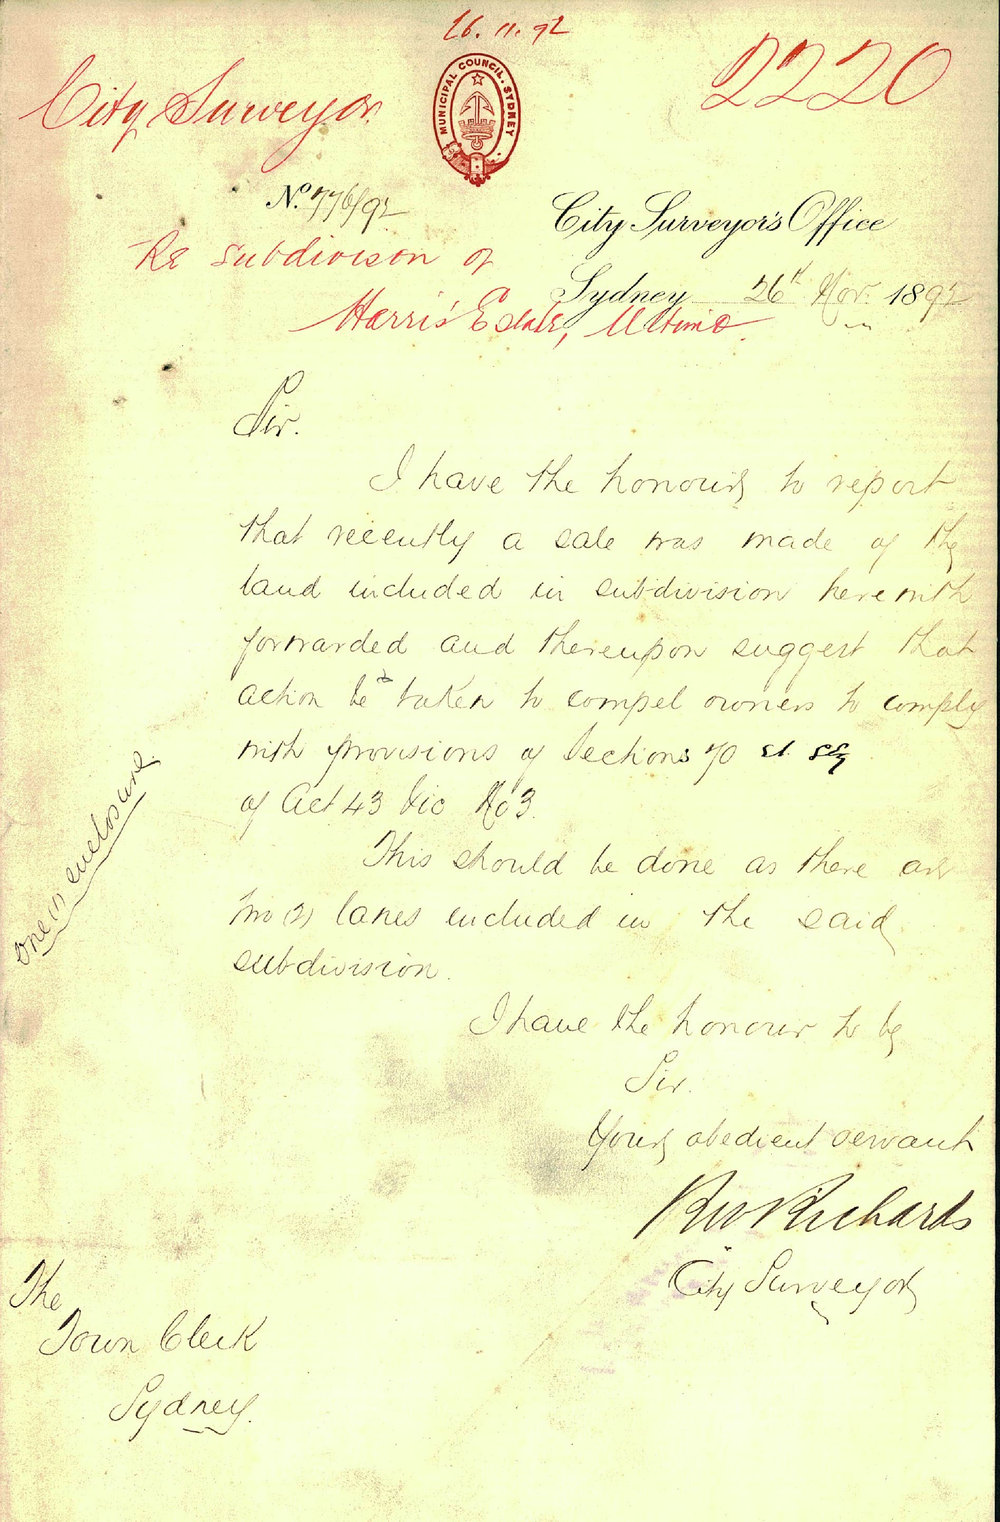 26.11.92
2220
City Surveyor
MUNICIPAL COUNCIL. SYDNEY
No. 776/92
City Surveyor's Office
Re Subdivison of
Sydney 26th Nov. 1892
Harris' Estate, Ultimo.
Sir.
I have the honour to report
that recently a sale was made of the
land included in subdivision herewith
forwarded and thereupon suggest that
action be taken to compel owners to comply
with provisions of Sections 70 et sq
of Act 43 Vic No 3.
This should be done as there are
two (2) lanes included in the said
subdivision.
one (1) enclosure.
I have the honour to be
Sir.
Your obedient servant
RW Richards
City Surveyor
The
Town Clerk
Sydney.